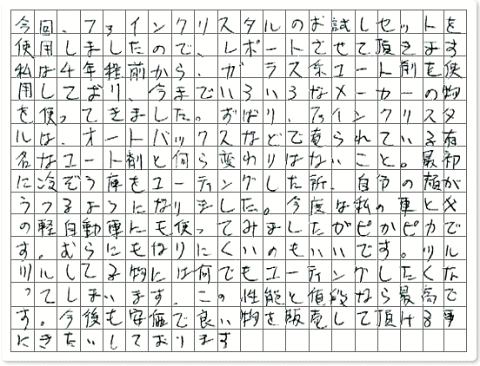 今回、ファインクリスタルのお試しセットを
使用しましたので、レポートさせて頂きます
私は4年程前から、ガラス系コート剤を使
用しており、今までいろいろなメーカーの物
を使ってきました。ずばり、ファインクリスタ
ルは、オートバックスなどで売られている有
名なコート剤と何ら変わりはないこと。最初
に冷ぞう庫をコーティングした所、自分の顔が
うつるようになりました。今度は私の車と父
の軽自動車にも使ってみましたがピカピカで
す。むらにもなりにくいのもいいです。ツル
ツルしてる物には何でもコーティングしたくな
ってしまいます。この性能と値段なら最高で
す。今後も安価で良い物を販売して頂ける事
にきたいしております